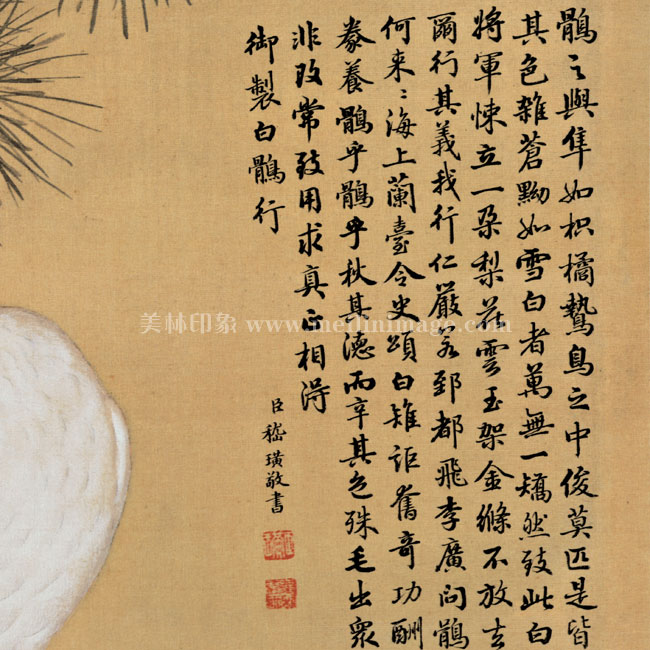 鶻之與隼如枳橘鷙鳥之中俊莫匹是皆
其色雜蒼黝如雪白者萬無一矯然致此白
將軍悚立一朶梨花雲玉架金絛不放去
爾行其義我行仁嚴若郅都飛李廣問鶻
何来〻海上蘭臺令史頌白雉詎奮奇功酬
豢養鶻乎鶻乎秋其德而辛其色殊毛出衆
非改常致用求真正相得
御製白鶻行
臣嵇璜敬書
美林印象 www.meilinimage.com